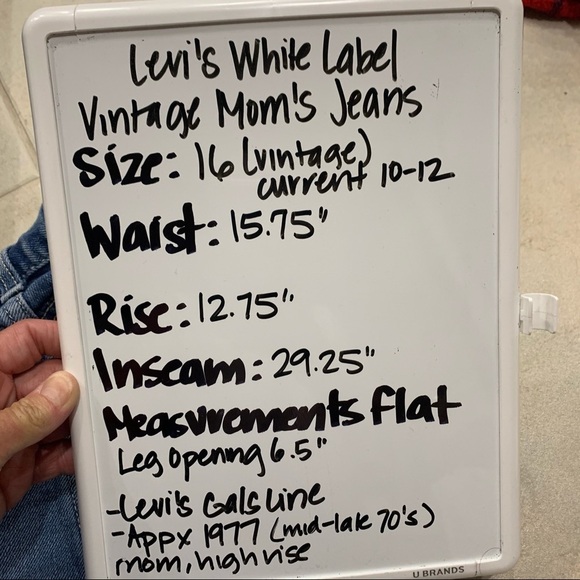 Levi's White Label
Vintage Mom's Jeans
Size: 16 (vintage)
current 10-12
Waist: 15.75"
Rise: 12.75"
Inseam: 29.25"
Measurements flat
Leg Opening 6.5"
-Levi's Gals Line
-Appx 1977 (mid-late 70's)
mom, high rise
U BRANDS